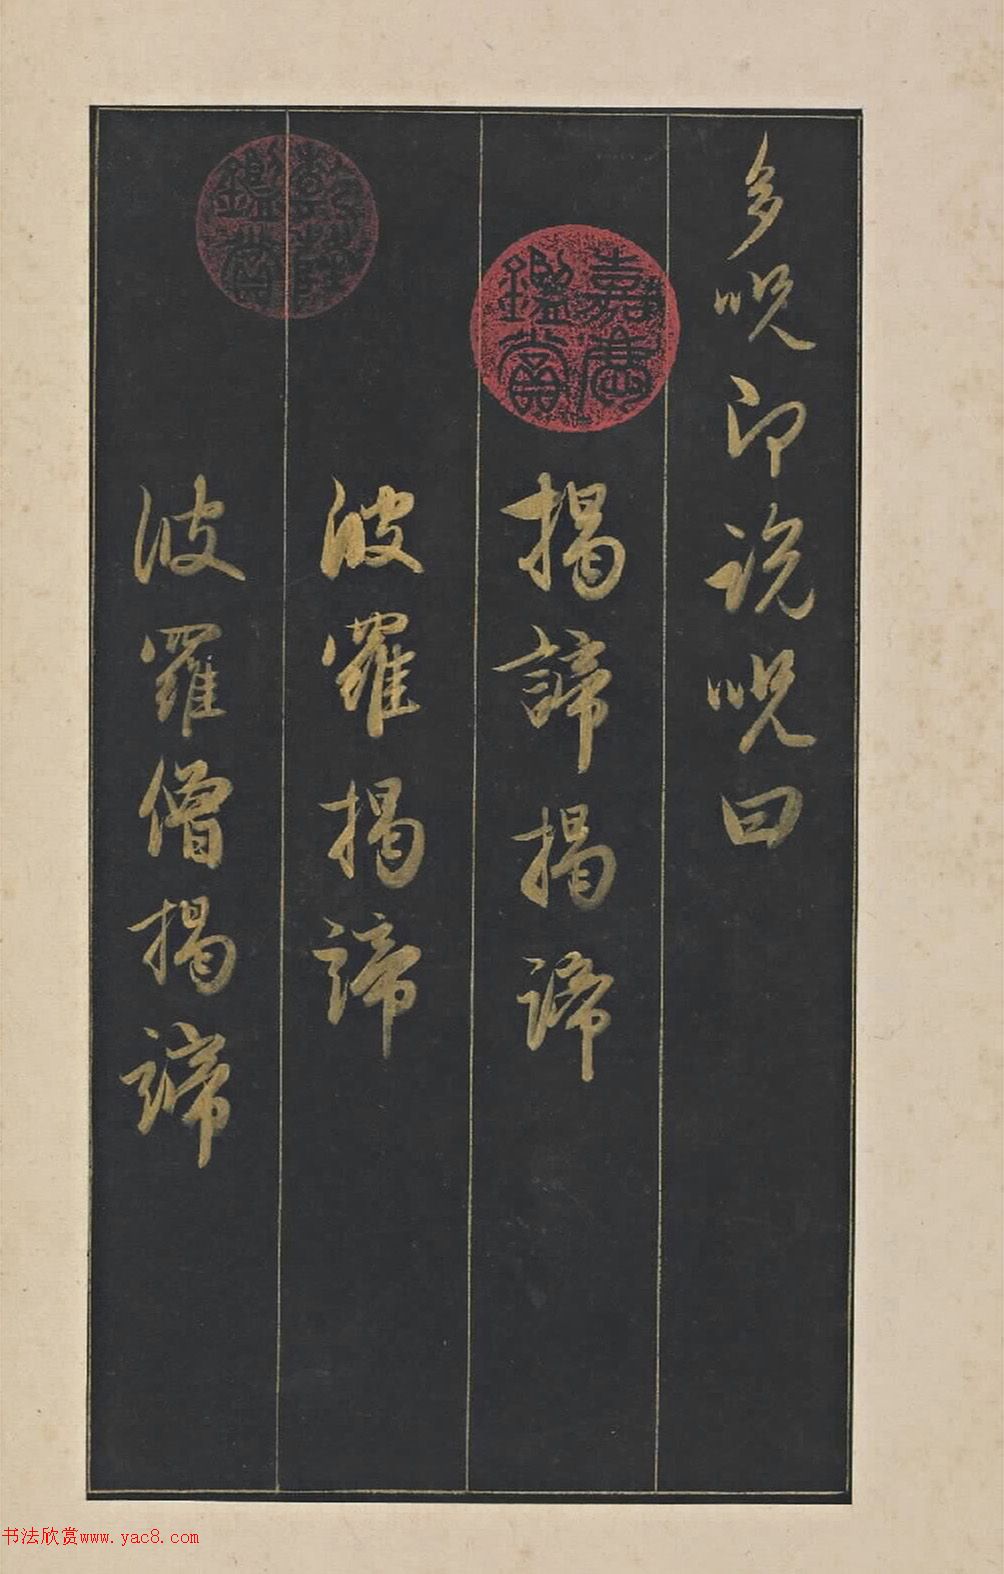 多呪即说呪曰
揭諦揭諦
波羅揭諦
波羅僧揭諦
嘉慶鑑賞
书法欣赏www.yac8.com